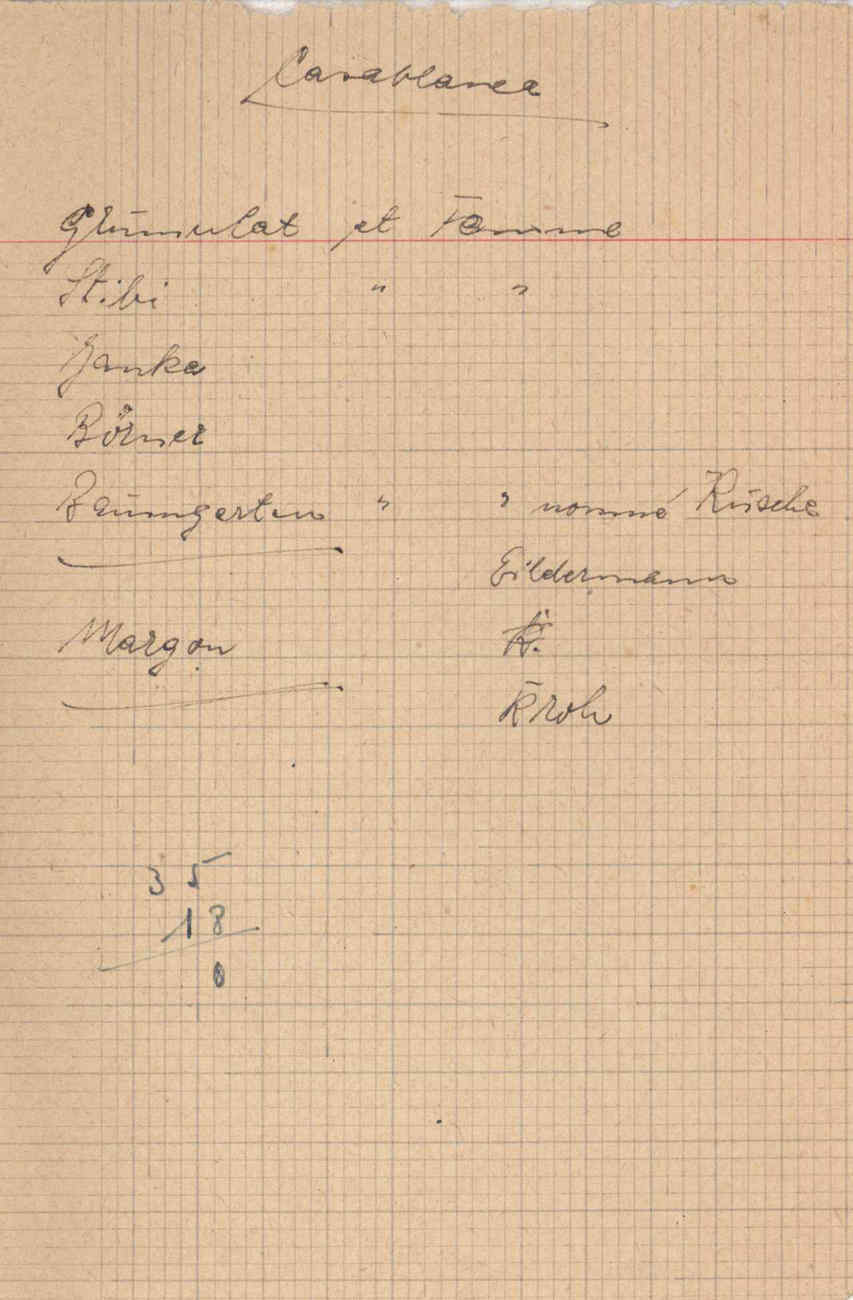 Casablanca
et Femme
Stibi " "
Janka
Börner
Baumgarten " " nommé Rusche
Eildermann
Margon
Kroh
35
18